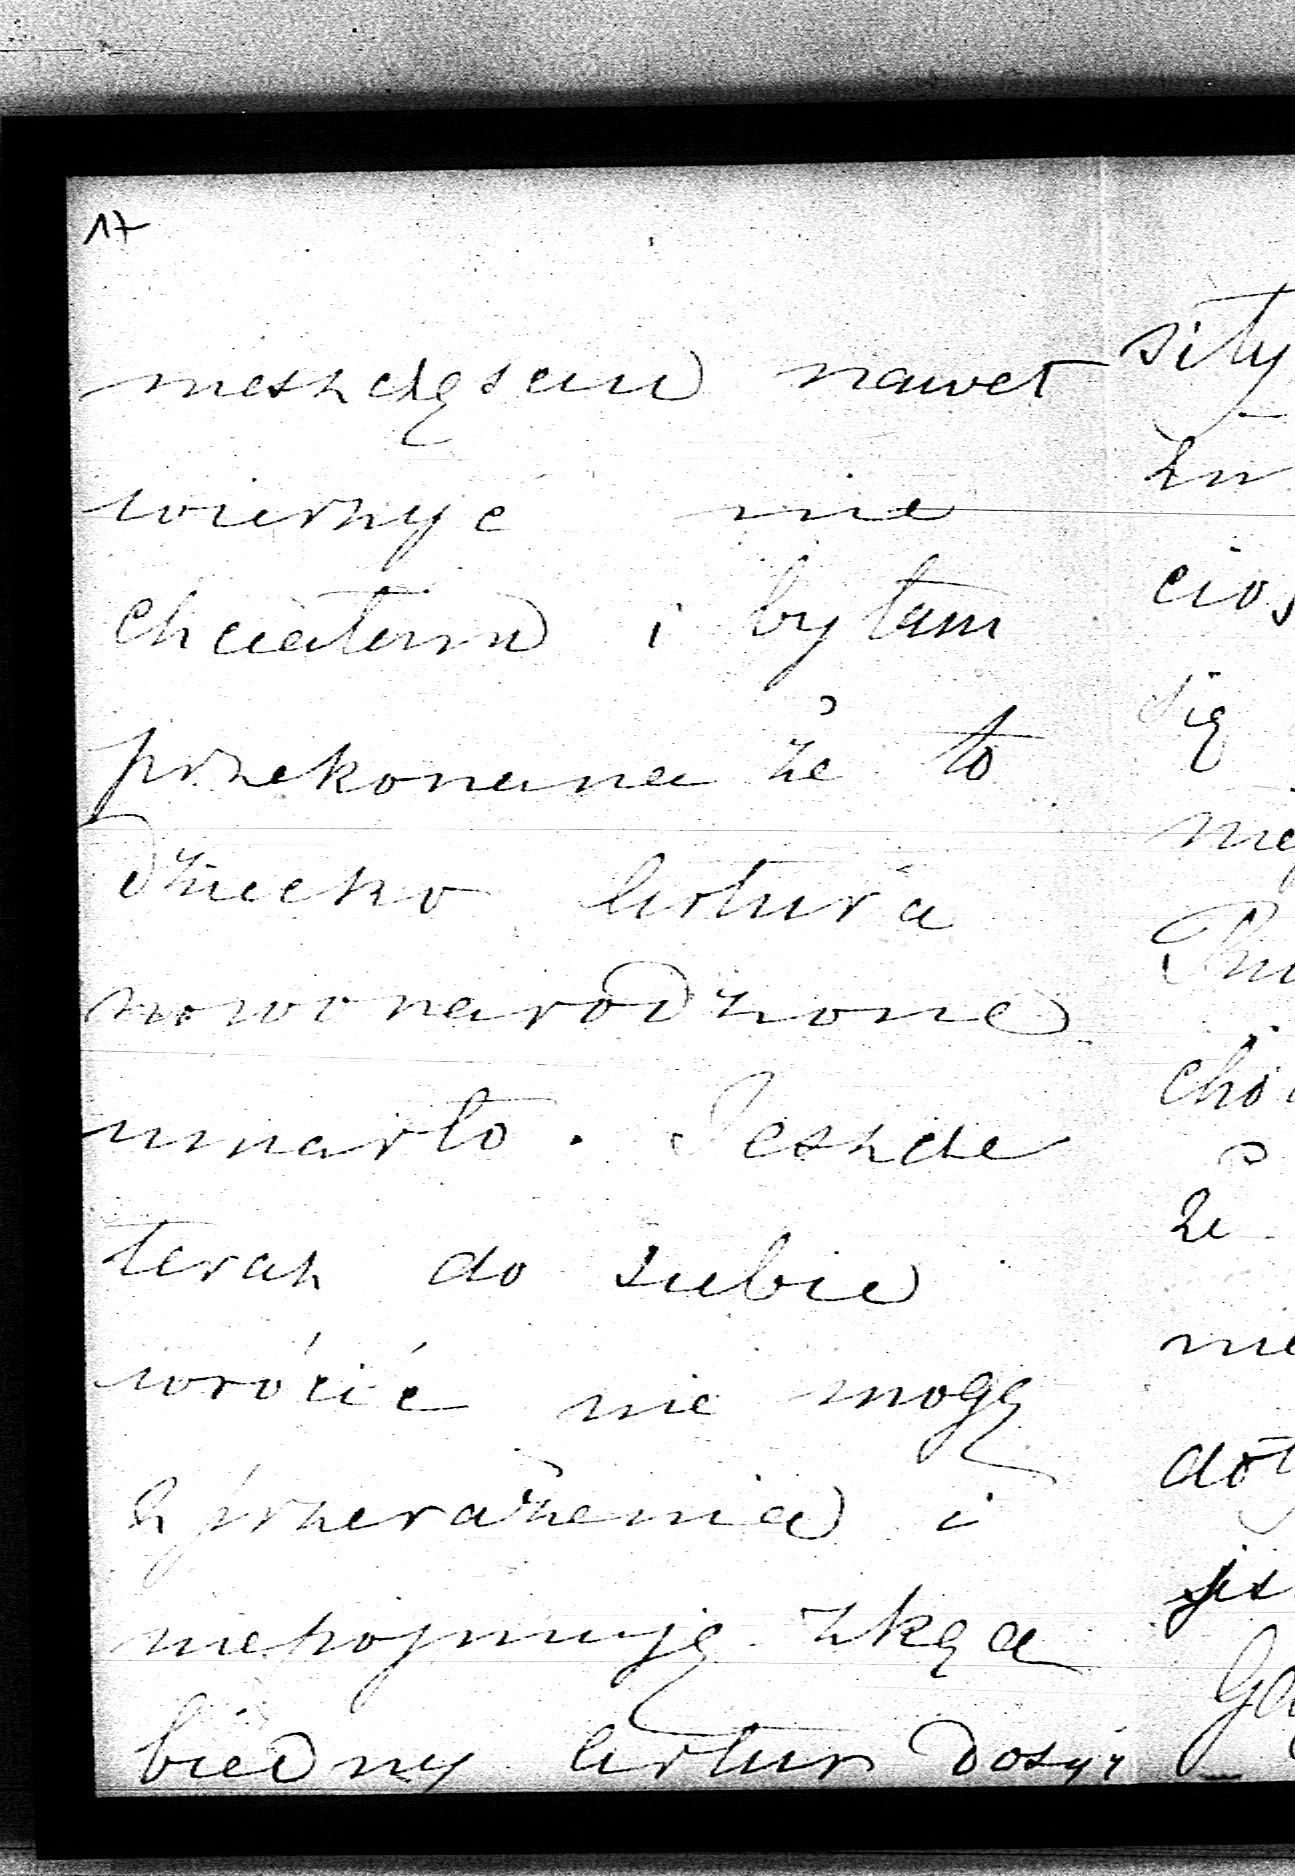 17
nieszczęściu nawet
wierzyć nie
chciałam i byłam
przekonana że to
dziecko Artura
nowonarodzone
umarło. Jeszcze
teraz do siebie
wrócić nie mogę
z przerażenia i
niepojmuję zkąd
biedny Artur dosyć
siły
się
że